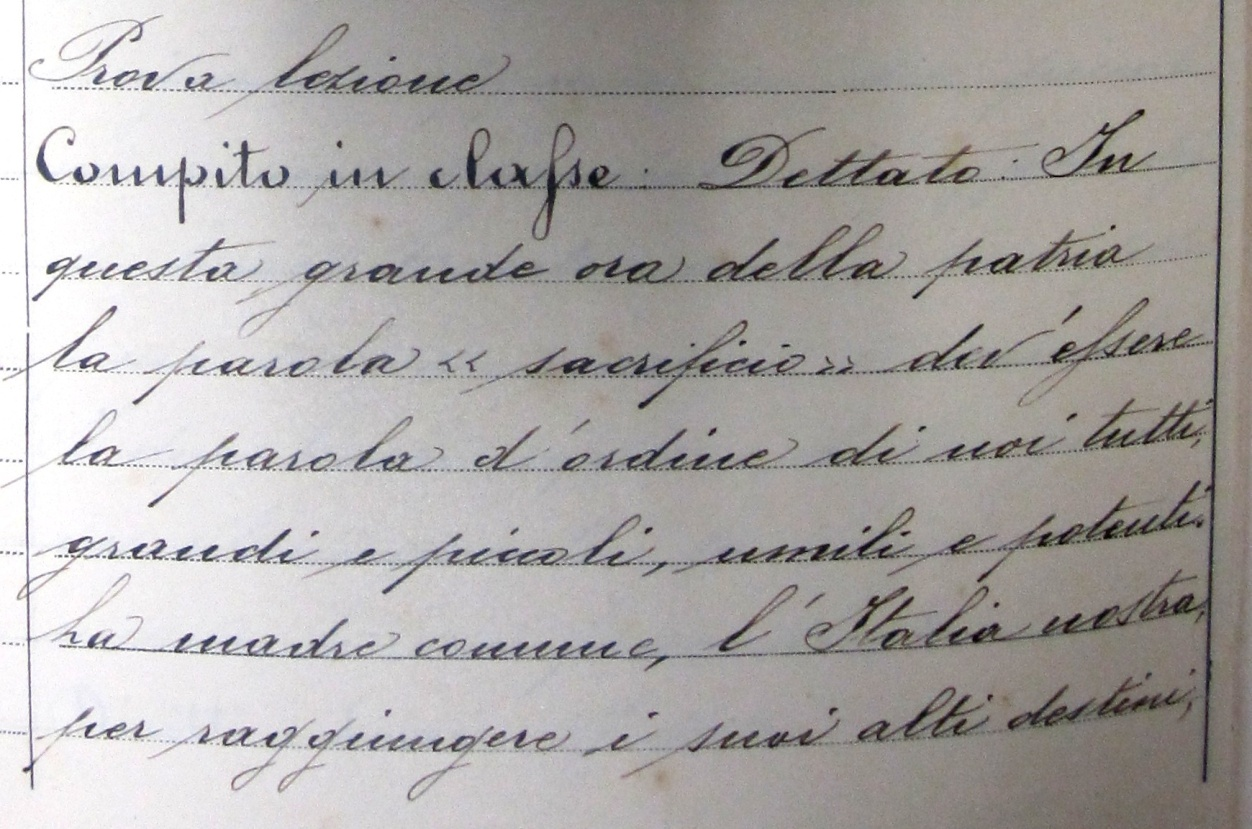 Prova lezione
Compito in classe: Dettato: In
questa grande ora della patria
la parola « sacrificio » dev'essere
la parola d'ordine di noi tutti,
grandi e piccoli, umili e potenti.
La madre comune, l'Italia nostra,
per raggiungere i suoi alti destini,